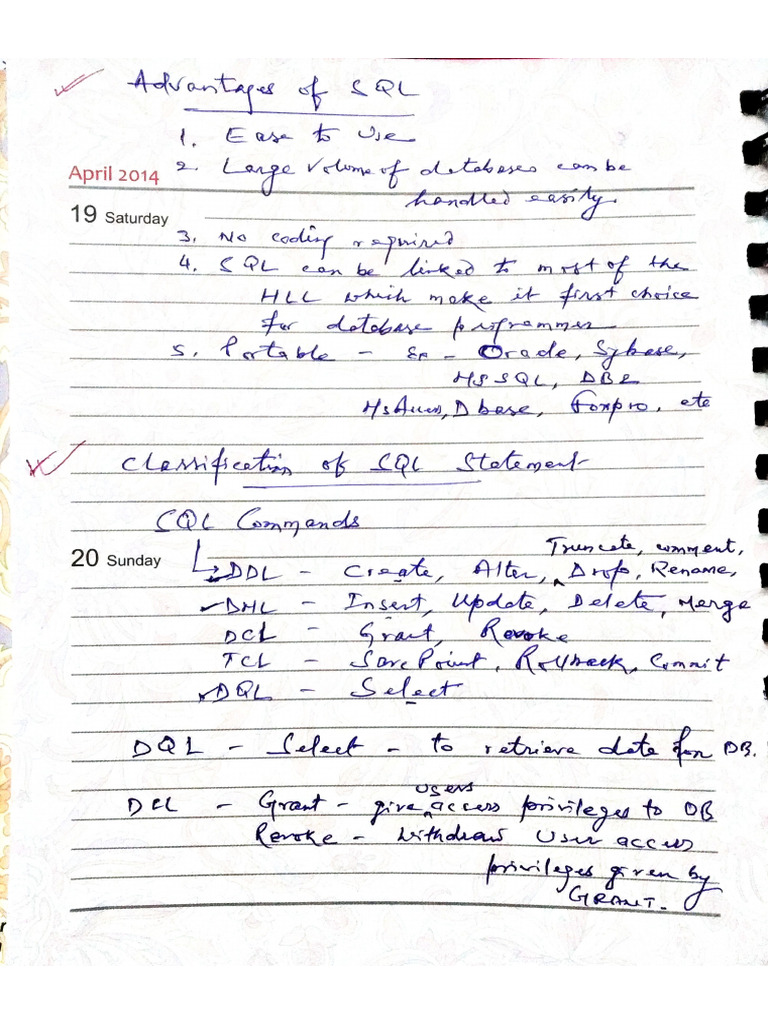 Advantages of SQL
1. Ease to Use
April 2014
2. Large Volume of databases can be
handled easily.
19 Saturday
3. No coding required
4. SQL can be linked to most of the
HLL which make it first choice
for database programmer
5. Portable - Ex - Oracle, Sybase,
MS SQL, DB2
Ms Access, Dbase, Foxpro, etc
Classification of SQL Statement
SQL Commands
Truncate, comment,
20 Sunday
DDL - Create, Alter, Drop, Rename,
DML - Insert, Update, Delete, Merge
DCL - Grant, Revoke
TCL - SavePoint, Rollback, Commit
DQL - Select
DQL - Select - to retrieve data from DB.
users
DCL - Grant - give access privileges to DB
Revoke - Withdraw User access
privileges given by
GRANT.